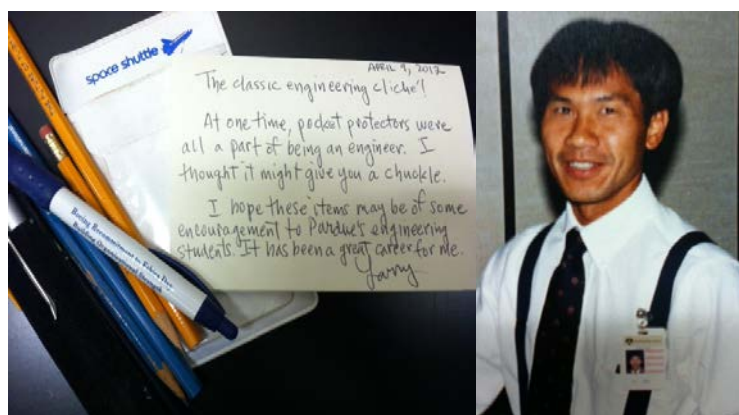 space shuttle
APRIL 9, 2012
The classic engineering cliche'!
At one time, pocket protectors were
all a part of being an engineer. I
thought it might give you a chuckle.
I hope these items may be of some
encouragement to Purdue's engineering
students. It has been a great career for me.
Larry
Boeing Recommitment to Ethics Day
Building Organizational Strength